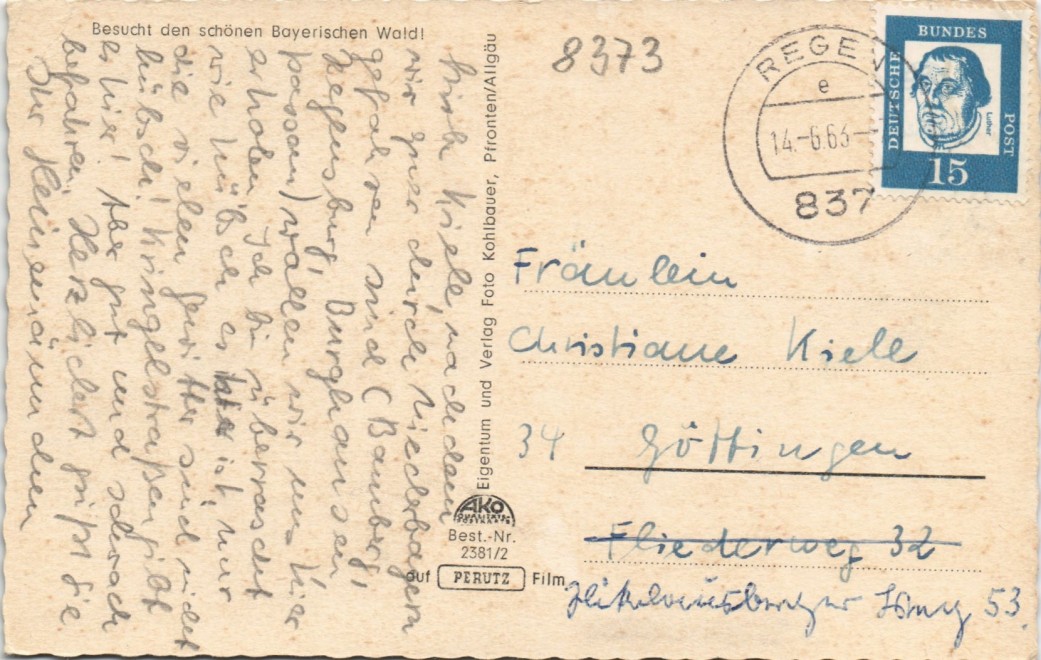 Besucht den schönen Bayerischen Wald!
8373
REGEN
e
14.-6.63-
837
DEUTSCHE
BUNDES
POST
Luther
15
Liebe Kiele, nachdem
wir quer durch Niederbayern
gefahren sind (Bamberg,
Regensburg, Burghausen
Passau) wollen wir uns hier
erholen. Ich bin überrascht
wie hübsch es hier ist, nur
die vielen Gewitter sind nicht
hübsch! Kringelstraßen gibt
es hier! Aber gut und schwach
befahren. Herzlichst grüßt Sie
Ihr
Eigentum und Verlag Foto Kohlbauer, Pfronten/Allgäu
AKO
QUALITÄTS-
POSTKARTE
Best.-Nr.
2381/2
auf PERUTZ Film
Fräulein
Christiane Kiele
34 Göttingen
Fliederweg 32
53.